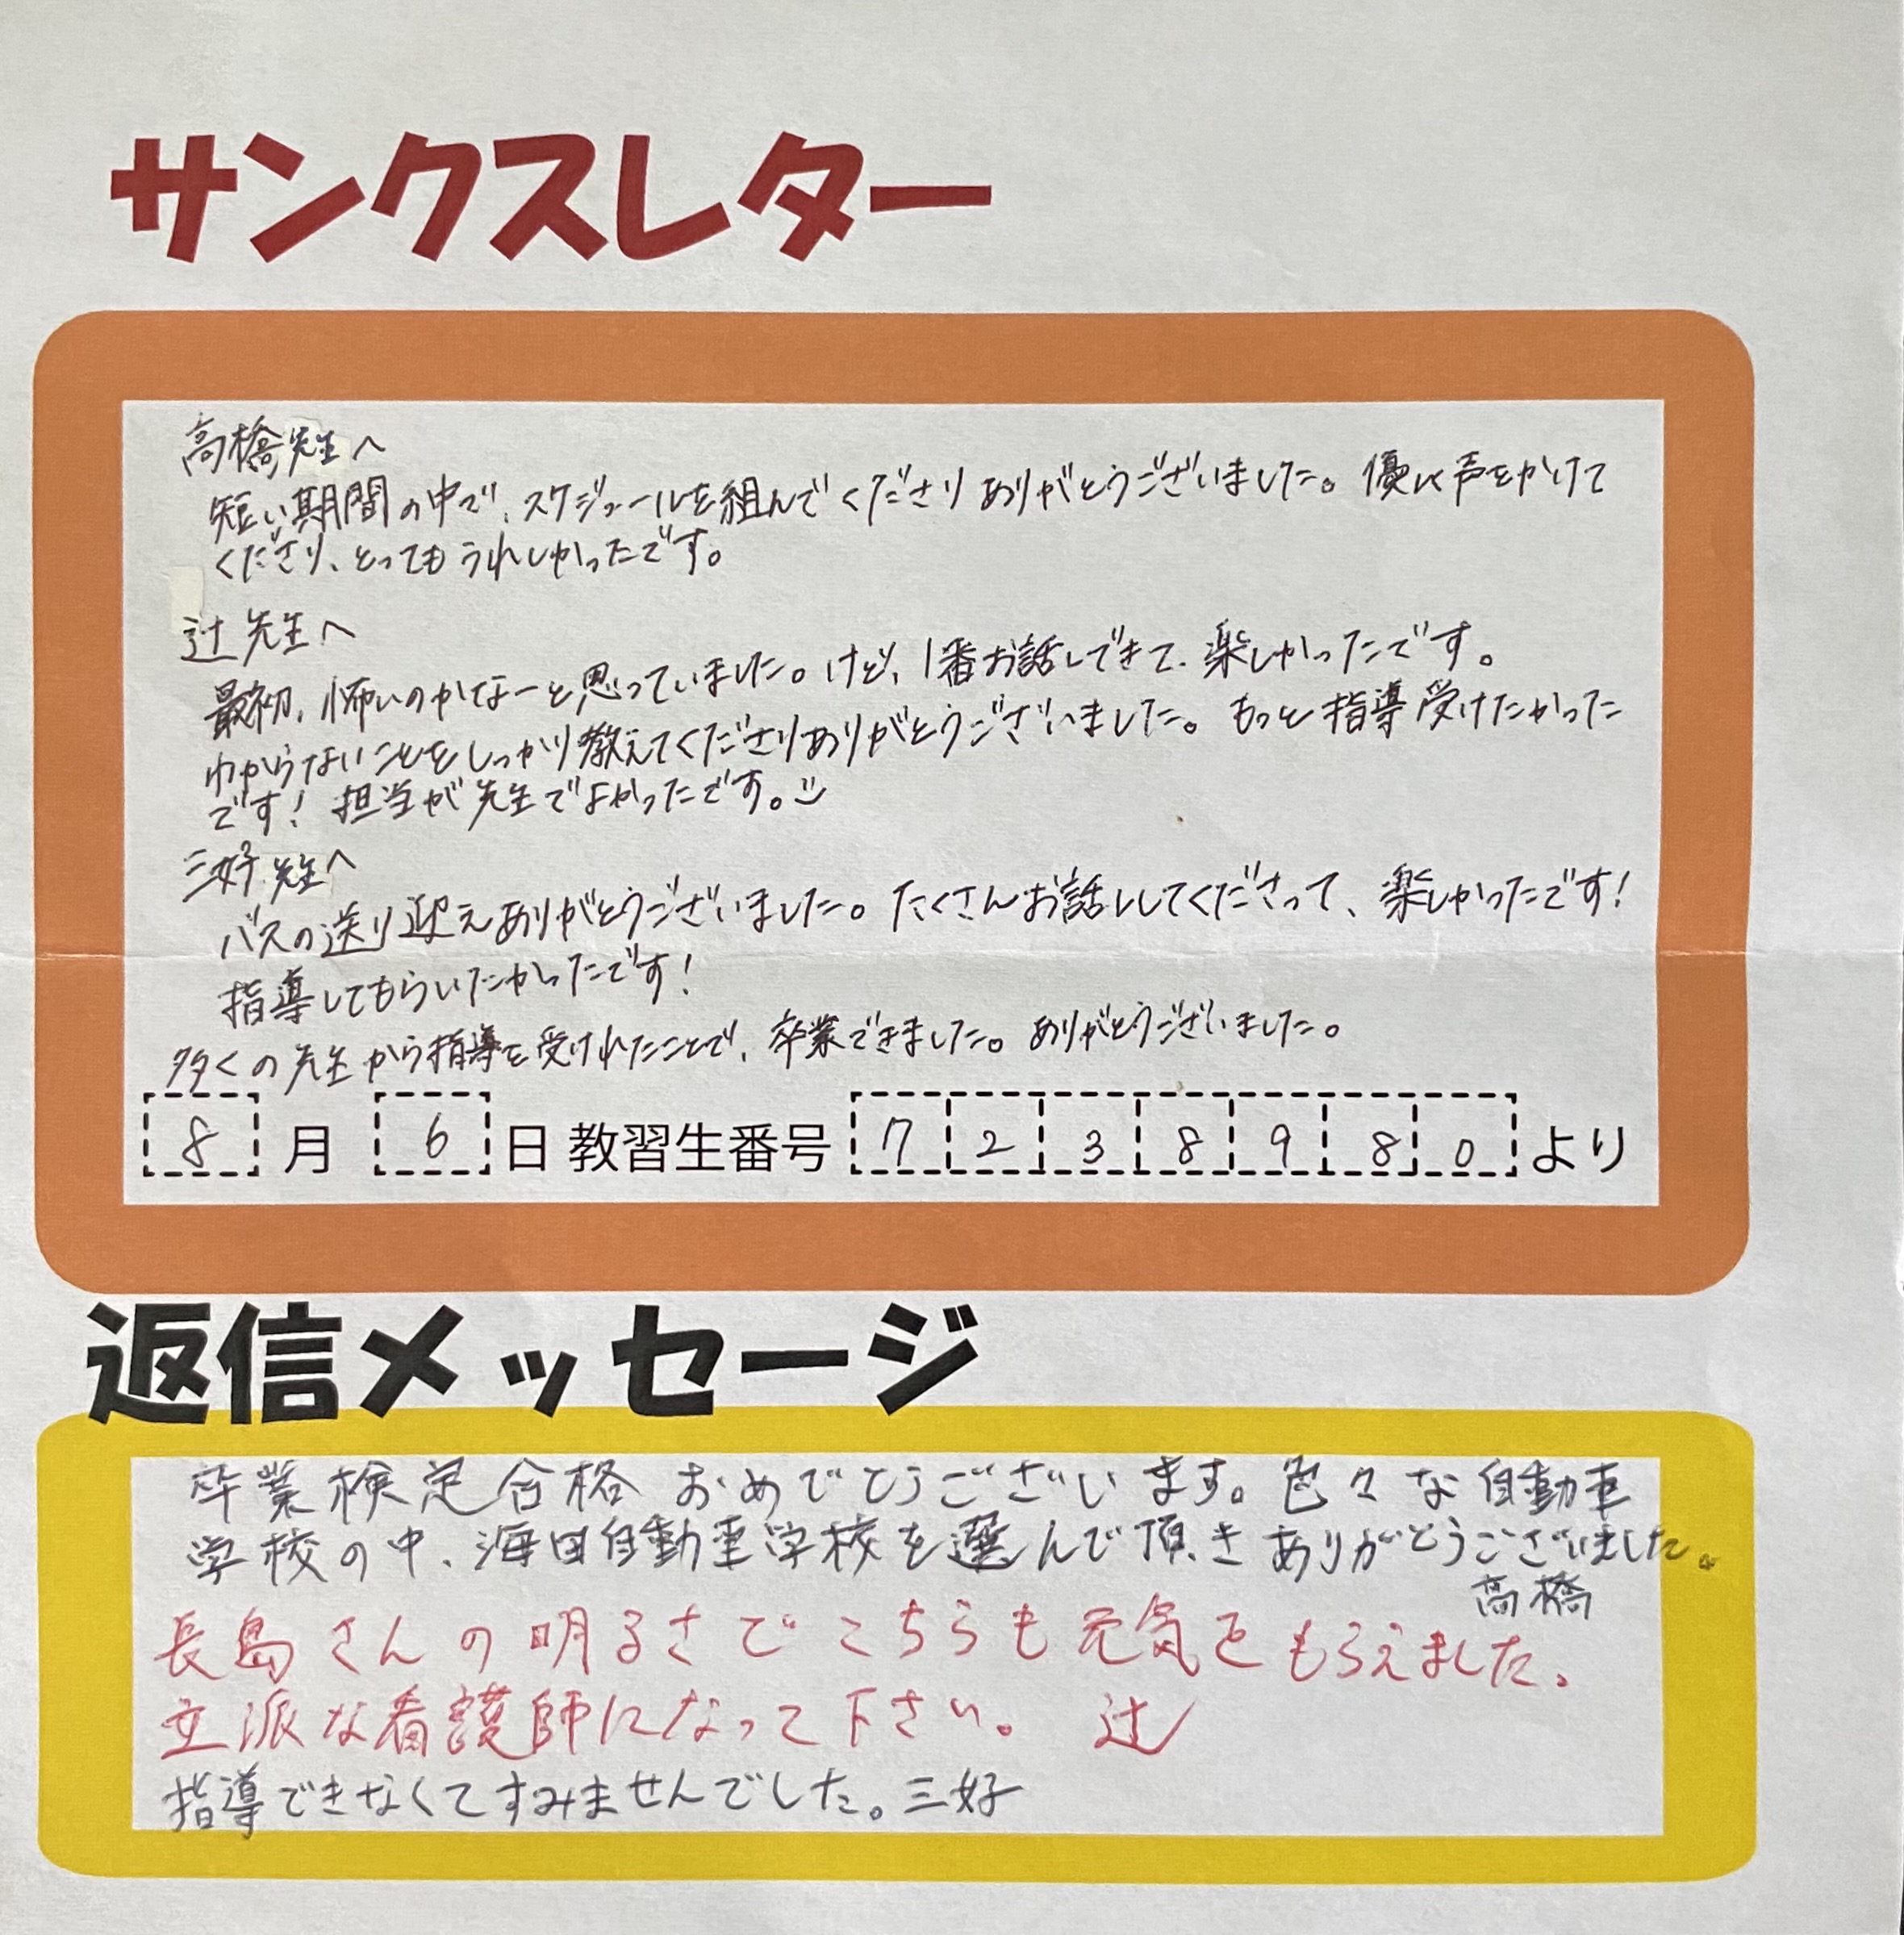 サンクスレター
高橋先生へ
短い期間の中で、スケジュールを組んでくださりありがとうございました。優しく声をかけて
くださり、とってもうれしかったです。
辻先生へ
最初、怖いのかなーと思っていました。けど、1番お話しできて、楽しかったです。
わからないことをしっかり教えてくださりありがとうございました。もっと指導受けたかった
です！担当が先生でよかったです。
三好先生へ
バスの送り迎えありがとうございました。たくさんお話ししてくださって、楽しかったです！
指導してもらいたかったです！
多くの先生から指導を受けれたことで、卒業できました。ありがとうございました。
8月6日教習生番号7238980より
返信メッセージ
卒業検定合格おめでとうございます。色々な自動車
学校の中、海田自動車学校を選んで頂きありがとうございました。
高橋
長島さんの明るさでこちらも元気をもらえました。
立派な看護師になって下さい。 辻
指導できなくてすみませんでした。三好